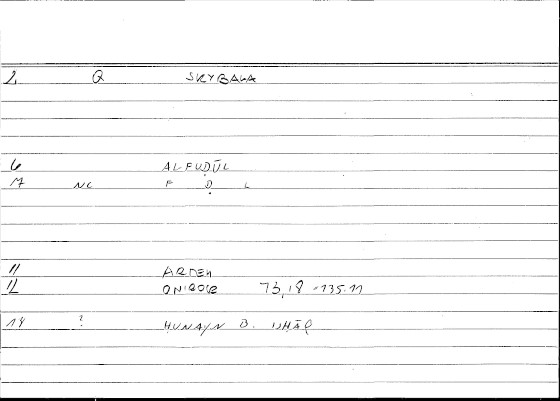 2 Q SKYBALA
6 ALFUḌŪL
7 NC F Ḍ L
11 ARDEH
12 ONIROCR 73,18 - 135.11
14 ? HUNAYN B. ISHĀQ